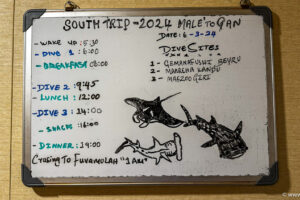 SOUTH TRIP - 2024 MALE' TO GAN
DATE: 6-3-24
- WAKE UP : 5:30
- DIVE 1 : 6:00
- BREAKFAST 08:00
- DIVE 2 : 9:45
- LUNCH : 12:00
- DIVE 3 : 14:00
- SNACKS : 16:00
- DINNER : 19:00
CRUSING TO FUVAMULAH "1AM"
DIVE SITES
1 - GEMANAFUSHI BEYRU
2 - KANDU
3 - GIRI